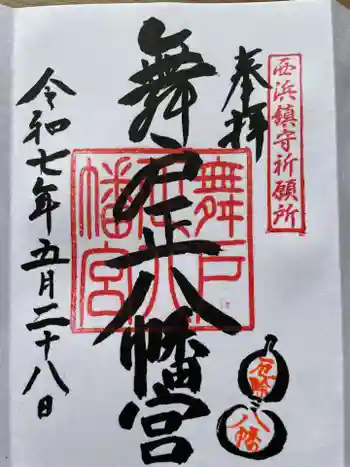 西浜鎮守祈願所
奉拝
舞戸正八幡宮
舞戸正八幡宮
令和七年五月二十八日
八幡